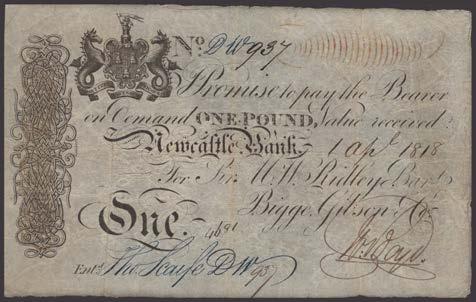 No. DW 937
Promise to pay the Bearer
on Demand ONE POUND, Value received
Newcastle Bank, 1 Apl 1818
For Sir. M. W. Ridley Bart
Bigge, Gibson & Co.
One. 4691
Entd. Tho. Scaife DW 937